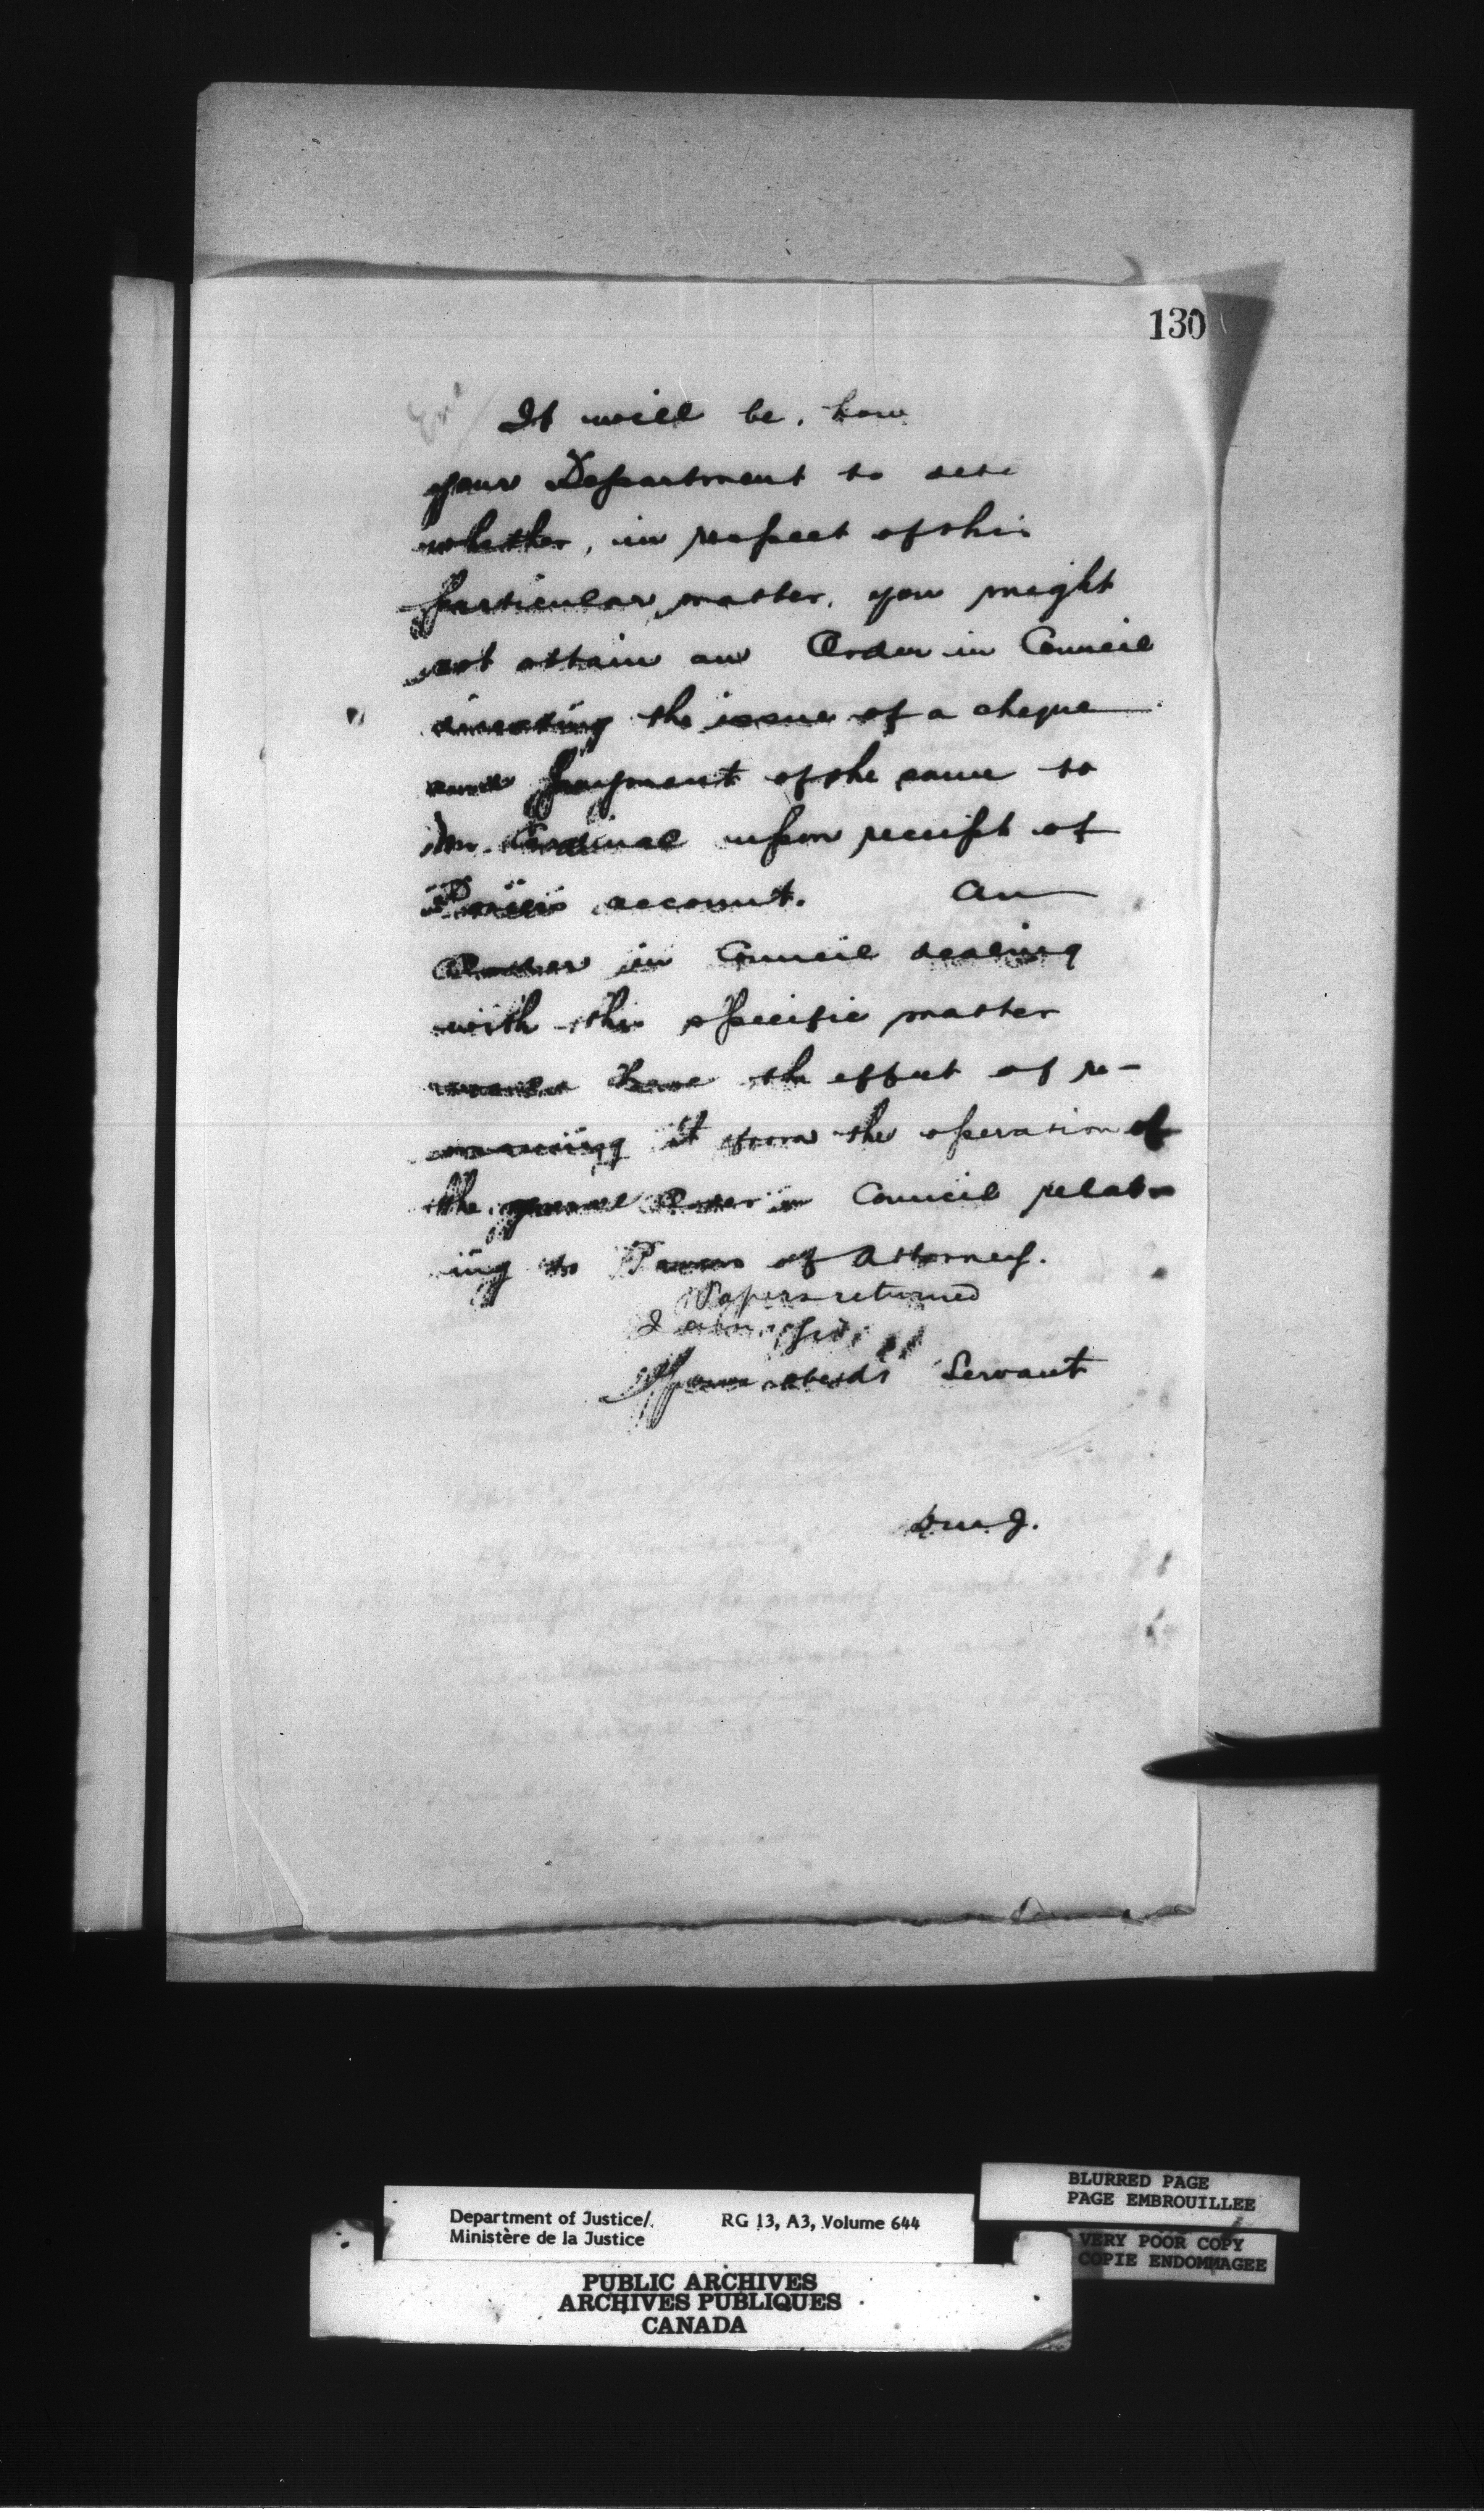 130
It will be. how
your Department to
whether, in respect of this
particular matter, you might
not obtain an Order in Council
directing the issue of a cheque
and payment of the same to
Mr. Cardinal upon receipt of
account. An
Order in Council dealing
with this specific matter
would have the effect of re-
moving it from the operation of
the general Order in Council relat-
ing to Powers of Attorney.
Papers returned
I am, Sir,
Your obedt Servant
D.M.J.
BLURRED PAGE
PAGE EMBROUILLEE
VERY POOR COPY
COPIE ENDOMMAGEE
Department of Justice/ RG 13, A3, Volume 644
Ministère de la Justice
PUBLIC ARCHIVES
ARCHIVES PUBLIQUES
CANADA